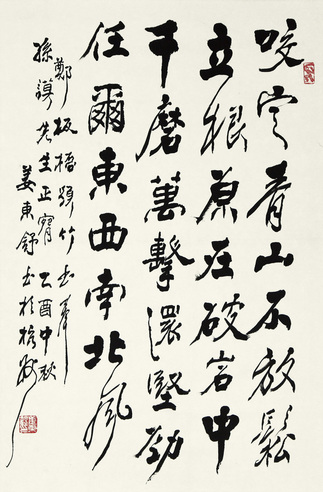 咬定青山不放鬆
立根原在破岩中
千磨萬擊還堅勁
任爾東西南北風
鄭板橋題竹 乙酉中秋
孫謨先生正 姜東舒書於